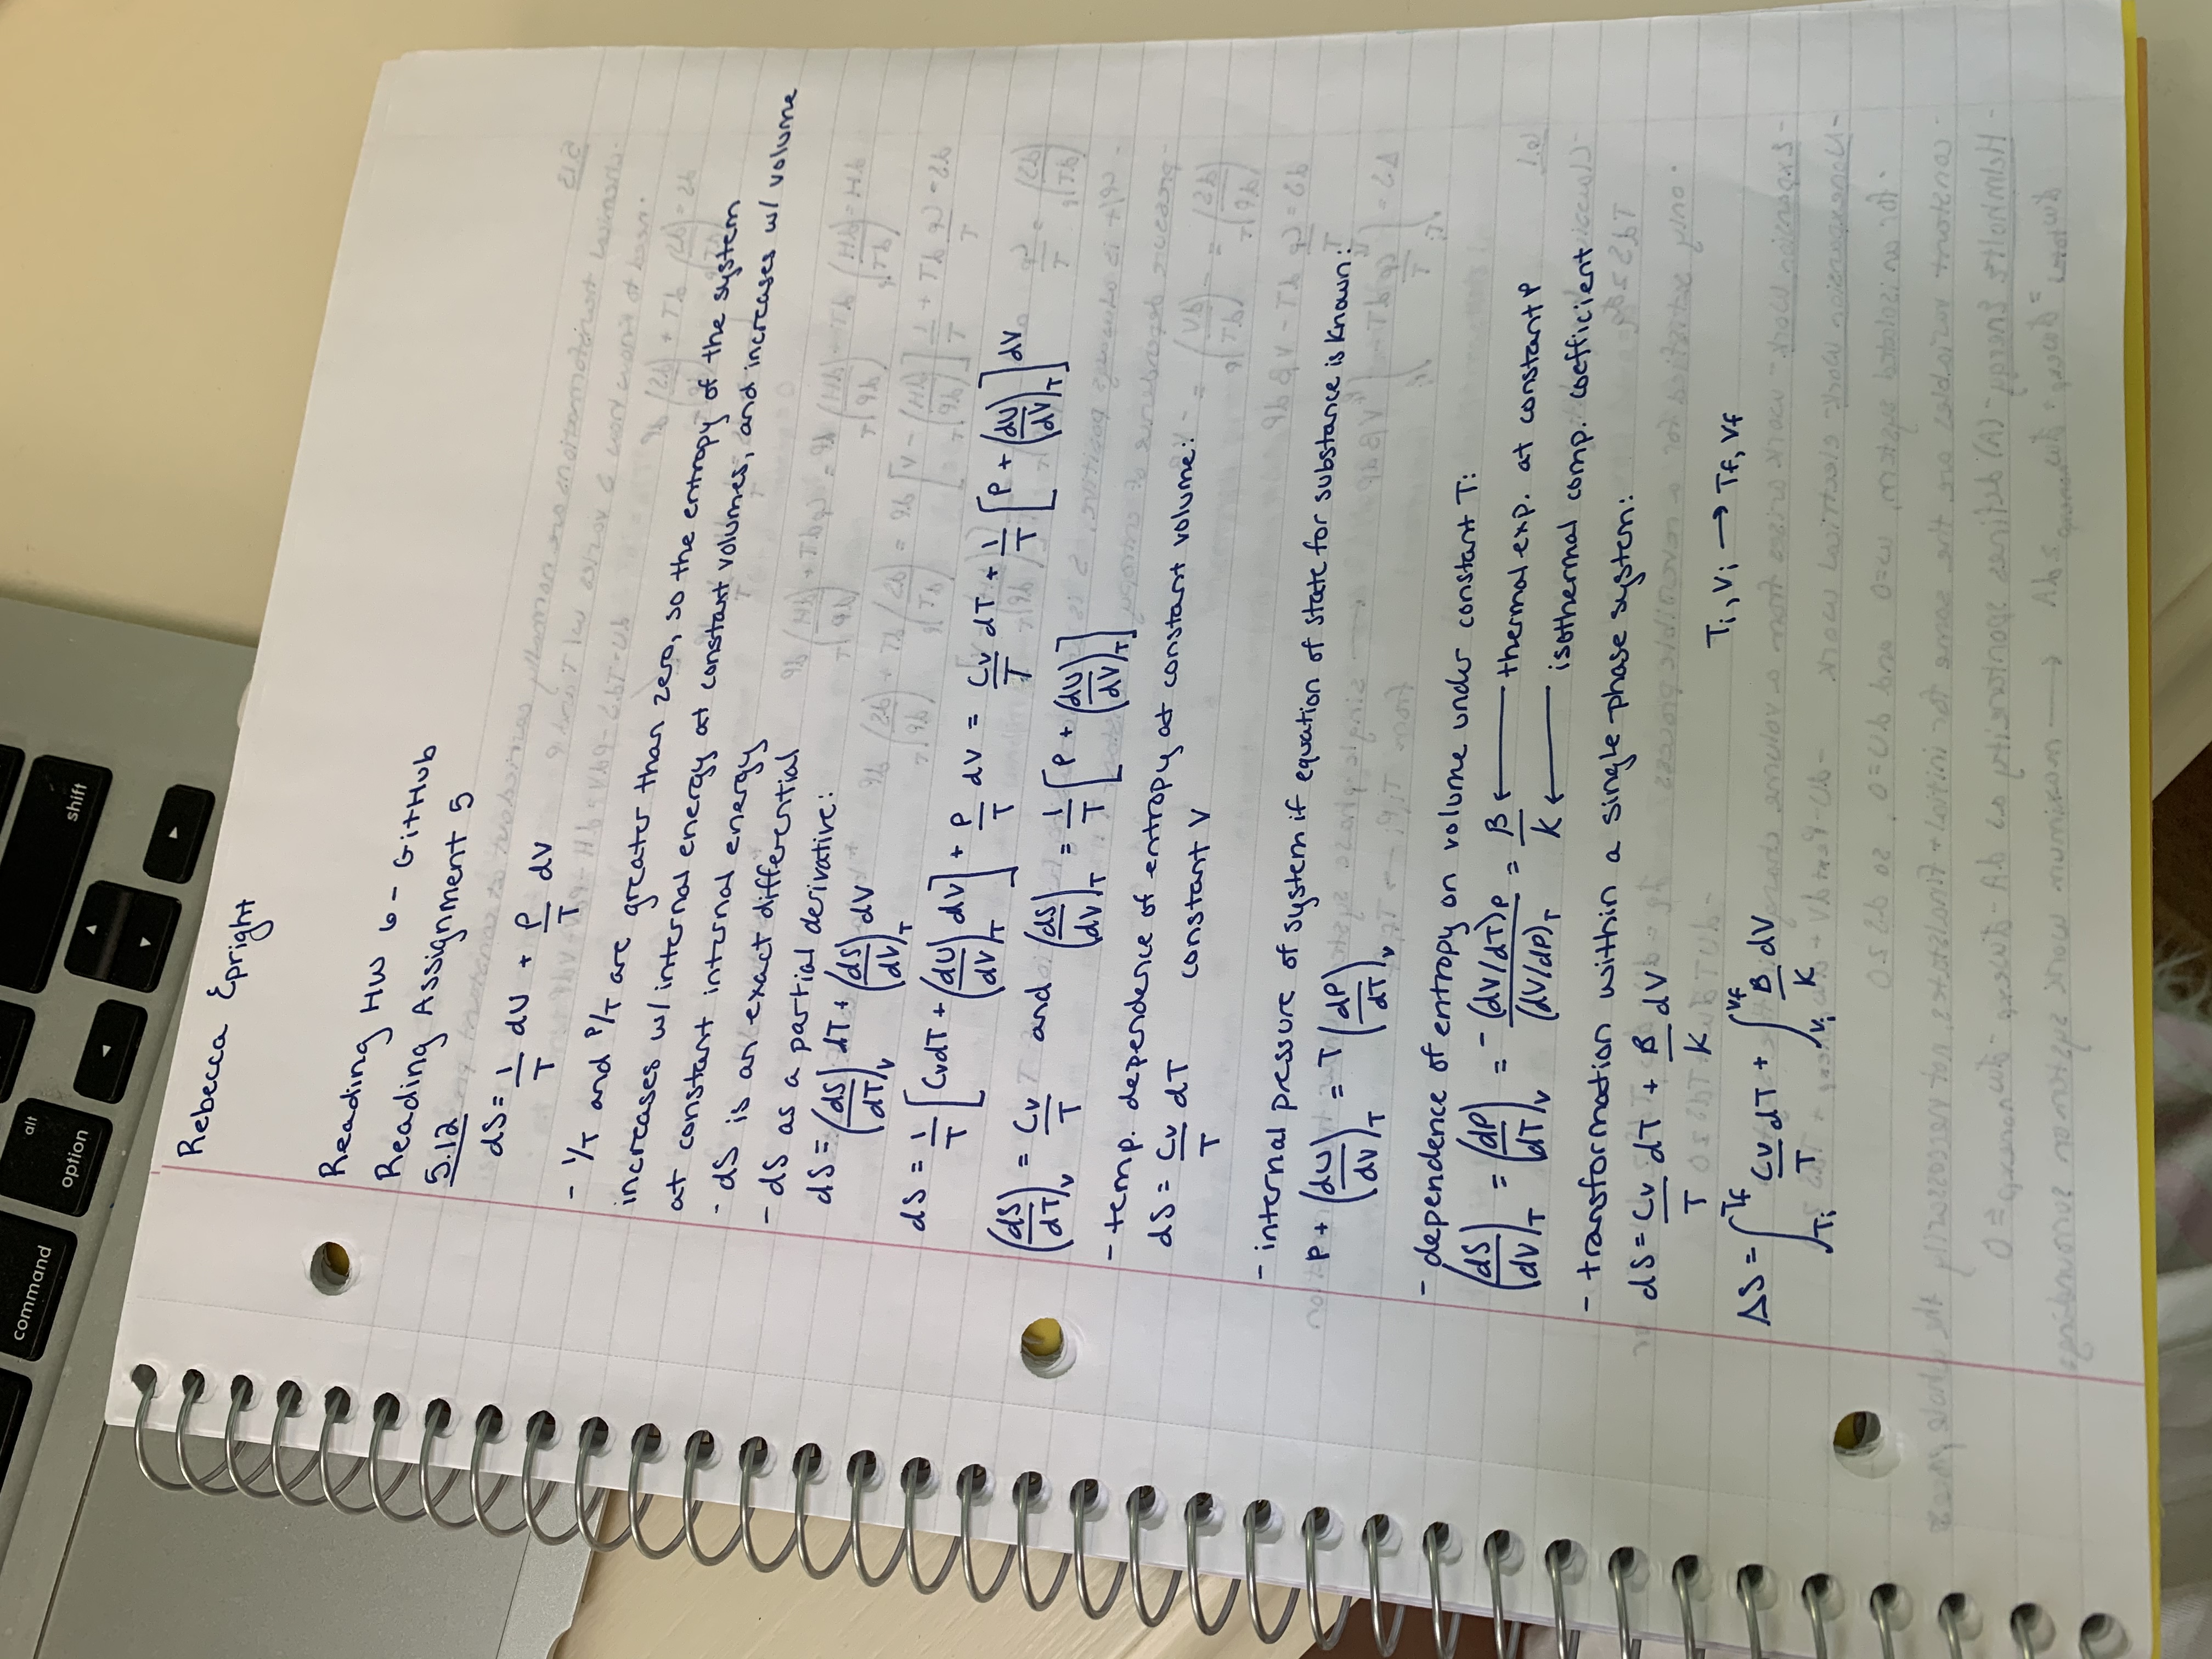 command
alt
option
shift
Rebecca Epright
Reading HW 6 - GitHub
Reading Assignment 5
5.12
dS = 1/T dU + P/T dV
- 1/T and P/T are greater than zero, so the entropy of the system
increases w/ internal energy at constant volumes, and increases w/ volume
at constant internal energy
- dS is an exact differential
- dS as a partial derivative:
dS = (dS/dT)_V dT + (dS/dV)_T dV
dS = 1/T [CvdT + (dU/dV)_T dV] + P/T dV = Cv/T dT + 1/T [P + (dU/dV)_T] dV
(dS/dT)_V = Cv/T and (dS/dV)_T = 1/T [P + (dU/dV)_T]
- temp. dependence of entropy at constant volume:
dS = Cv/T dT constant V
- internal pressure of system if equation of state for substance is known:
P + (dU/dV)_T = T (dP/dT)_V
- dependence of entropy on volume under constant T:
(dS/dV)_T = (dP/dT)_V = -(dV/dT)_P / (dV/dP)_T = β/κ ← thermal exp. at constant P
← isothermal comp. coefficient
- transformation within a single-phase system:
dS = Cv/T dT + β/κ dV
Ti, Vi → Tf, Vf
ΔS = ∫_Ti^Tf Cv/T dT + ∫_Vi^Vf β/κ dV